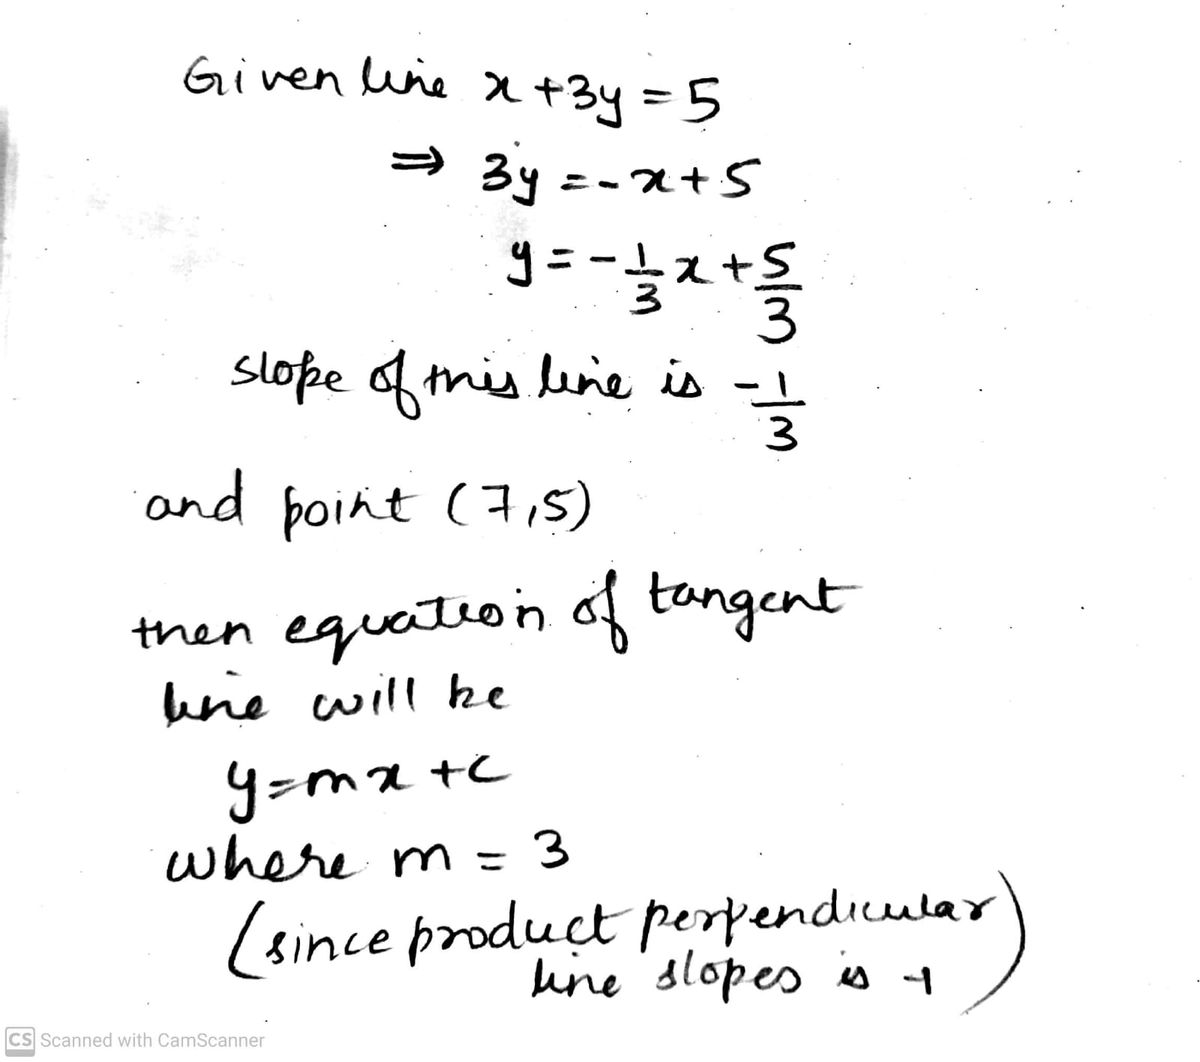 Given line x + 3y = 5
⇒ 3y = -x + 5
y = -1/3 x + 5/3
slope of this line is -1/3
and point (7,5)
then equation of tangent
line will be
y = mx + c
where m = 3
(since product perpendicular
line slopes is -1)
CS Scanned with CamScanner